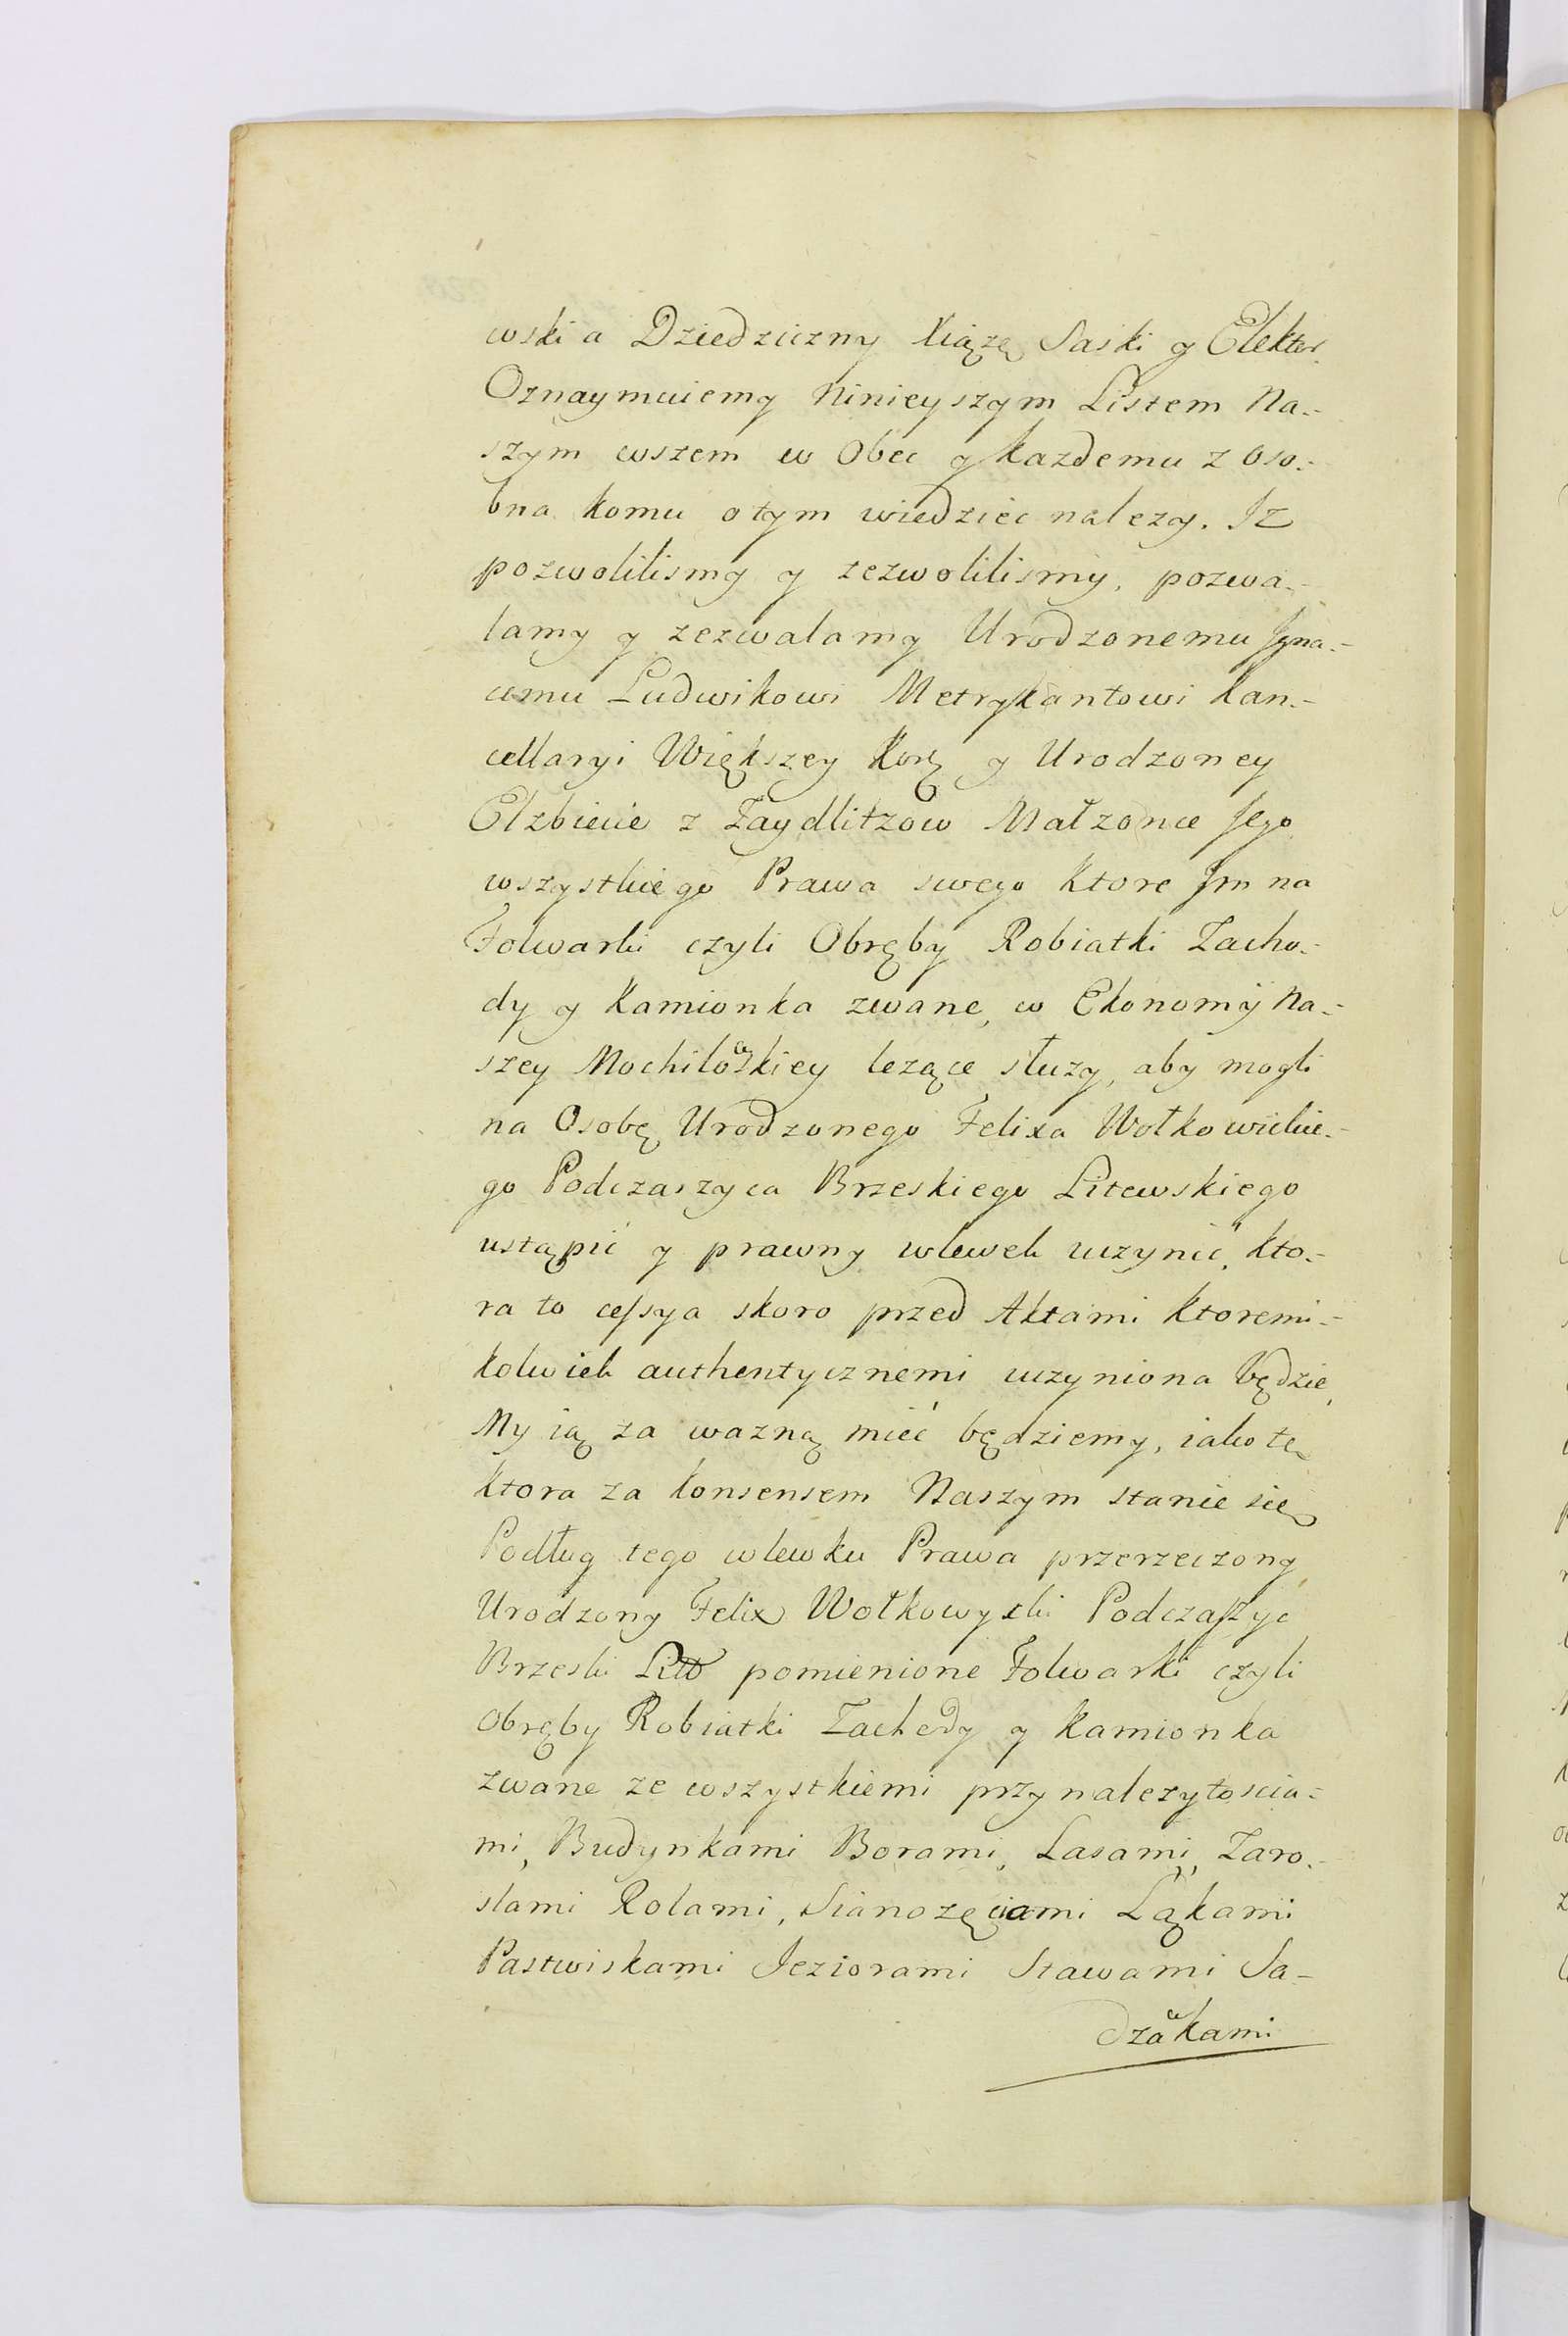 wski a Dziedziczny Xiążę Saski y Elektor
Oznaymuiemy Ninieyszym Listem Na-
szym wszem w Obec y każdemu z oso-
bna komu o tym wiedziec nalezy. Iż
pozwolilismy y zezwolilismy, pozwa-
lamy y zezwalamy Urodzonemu Igna-
cemu Ludwikowi Metrykantowi Kan-
cellaryi Większey Korẏ y Urodzoney
Elzbiecie z Zaydlitzow Małzonce Jego
wszystkiego Prawa swego Ktore Jm na
Folwarki czyli Obręby Robiatki Zacho-
dy y Kamionka zwane, w Ekonomÿ Na-
szey Mochilowskiey lezące słuzy, aby mogli
na Osobę Urodzonego Felixa Wołkowickie-
go Podczaszyca Brzeskiego Litewskiego
ustąpić y prawny wlewek uczynić, kto-
ra to cessya skoro przed Aktami Ktoremi-
kolwiek authentycznemi uczyniona będzie,
My ią za wazną mieć będziemy, iako tę
ktora za konsensem Naszym stanie się
Podług tego wlewku Prawa przerzeczony
Urodzony Felix Wołkowycki Podczaszyc
Brzeski Litt pomienione Folwarki czyli
Obręby Robiatki Zachedy y Kamionka
zwane ze wszystkiemi przynalezytoscia-
mi, Budynkami Borami, Lasami, Zaro-
slami Rolami, Sianozęciami Ląkami
Pastwiskami Jeziorami Stawami Sa-
dzawkami